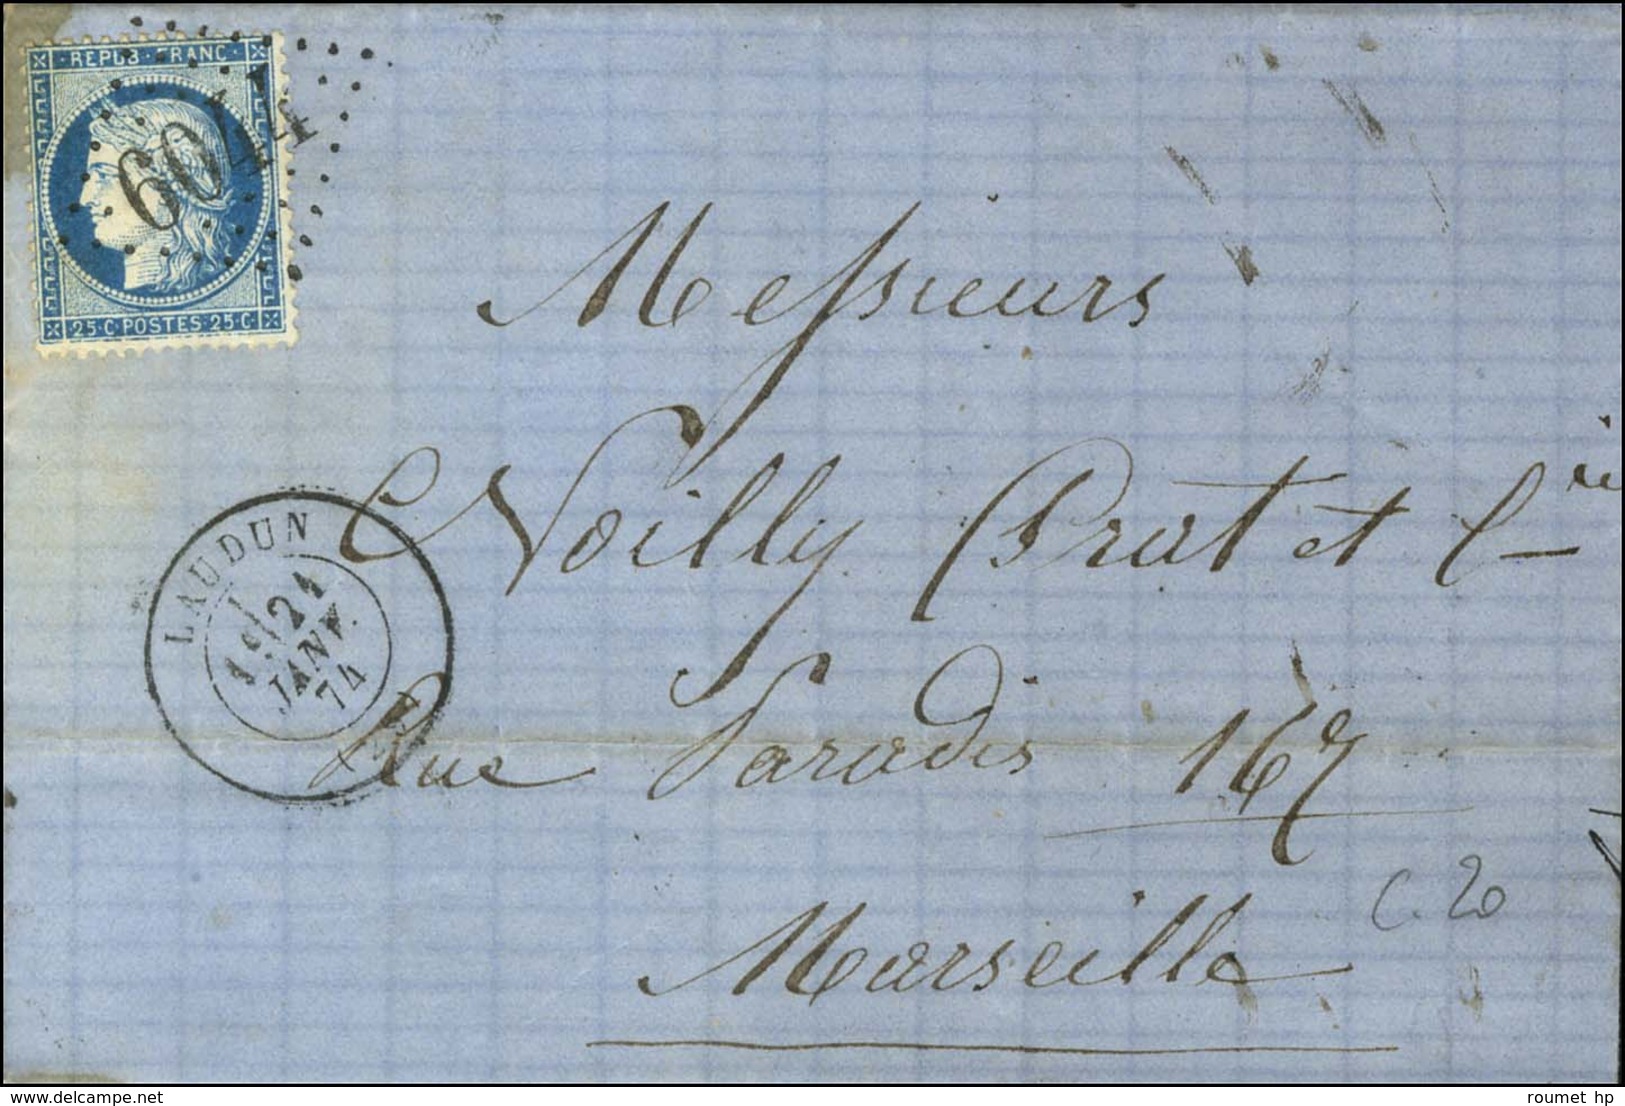 REPUB·FRANC
6044
25·C·POSTES·25·C
Messieurs
Noilly Prat et Cie
LAUDUN
21
JANV.
74
Rue Paradis 167
C. 20
Marseille
www.delcampe.net
roumet hp